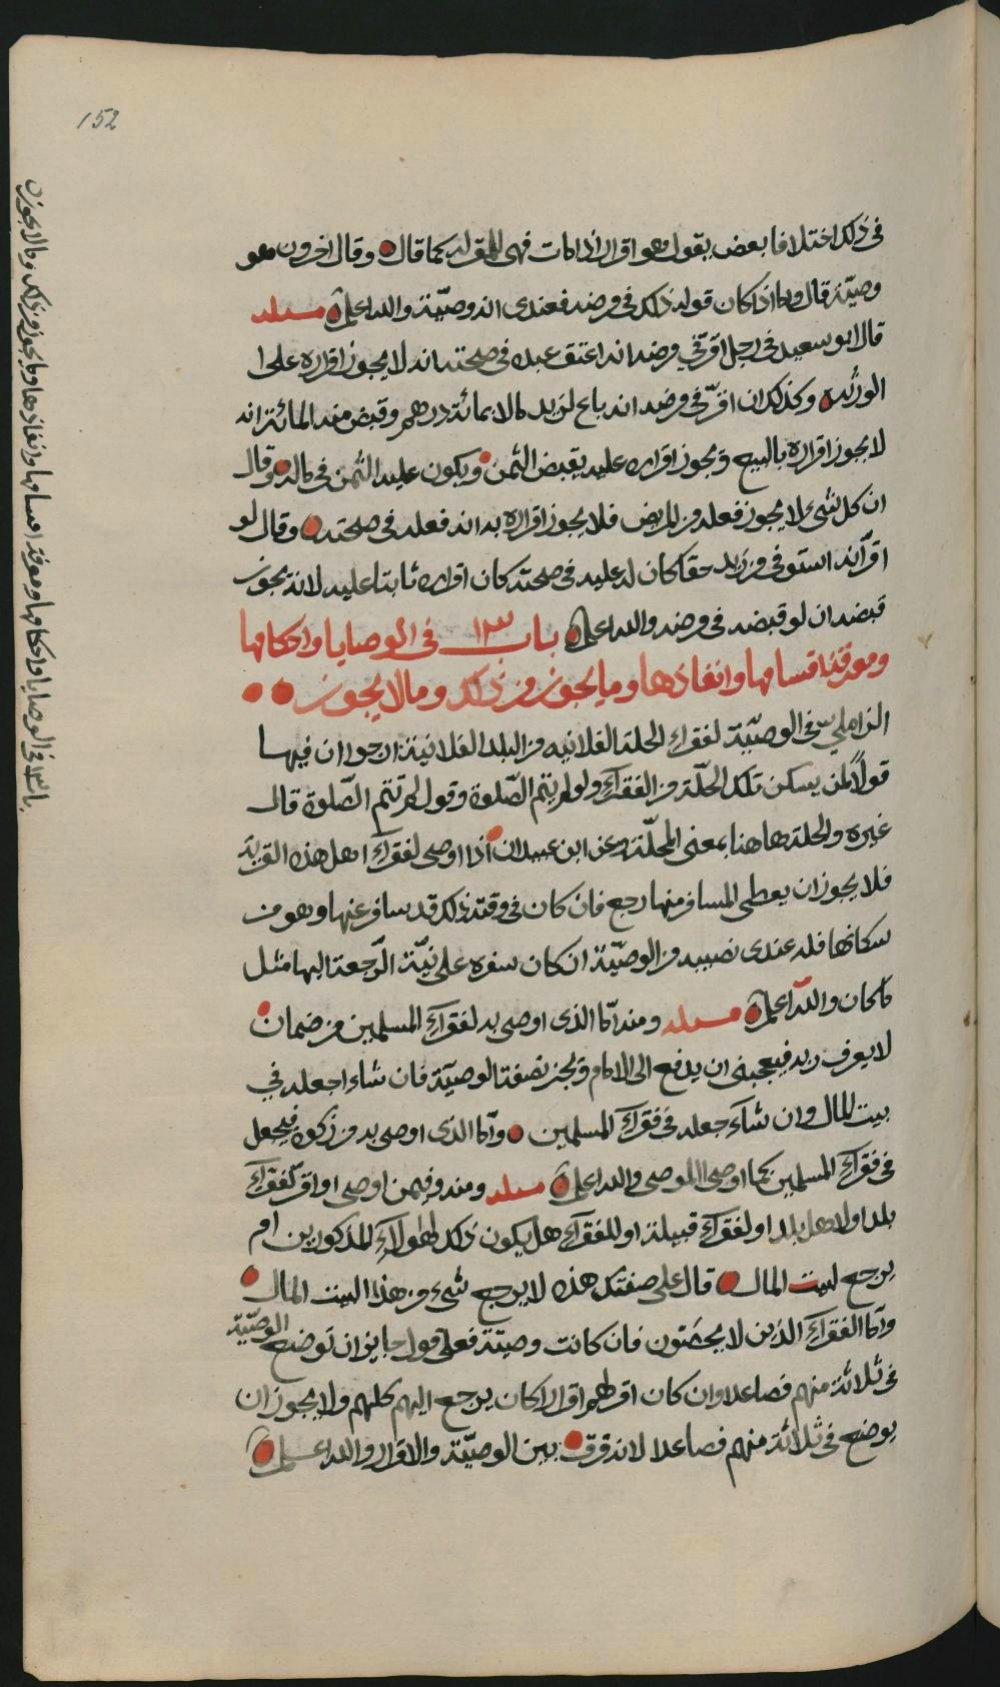 152
في ذلك اختلافا بعض يقول هو اقرار اذا مات فهي للمقر له كما قال وقال اخرون هو
وصيّة قال واما اذا كان قوله ذلك في مرضه فعندي انه وصيّة والله اعلم مسئله
قال ابو سعيد في رجل اقرّ في مرضه انه اعتق عبده في صحته انه لا يجوز اقراره على ا
الورثه وكذلك ان اقرّ في مرضه انه باع لزيد مالا بمائة درهم وقبض منه المائة انه
لا يجوز اقراره بالبيع ويجوز اقراره عليه بقبض الثمن ويكون عليه الثمن في ماله وقال
ان كل شيء لا يجوز فعله من المريض فلا يجوز اقراره به انه فعله في صحته وقال لو
اقرّ انه استوفى من زيد حقا كان له عليه في صحته كان اقراره ثابتا عليه لانه يجوز
قبضه ان لو قبضه في مرضه والله اعلم باب ١٣ في الوصايا واحكامها
ومعرفة اقسامها وانفاذها وما يجوز من ذلك وما لا يجوز
الزاملي في الوصيّة لفقراء الحلة الفلانيه من البلد الفلانية ارجوا ان فيها
قولاً لمن يسكن تلك الحلّة من الفقراء ولو لم يتم الصّلوة وقول لمن تتم الصّلوة قال
غيره والحلة هاهنا بمعنى المحلّة وعن ابن عبيدان اذا اوصى لفقراء اهل هذه القرية
فلا يجوز ان يعطى المسافر منها رجع فان كان في وقته ذلك قد سافر عنها وهو من
سكانها فله عندي نصيبه من الوصيّة ان كان سفره على نيّة الرّجعة اليها مثل
ما كان والله اعلم مسئله ومنه امّا الذي اوصى به لفقراء المسلمين من ضمان
لا يعرف ربه فيعجبني ان يدفع الى الامام ويخبر بصفة الوصيّة فان شاء اجعله في
بيت المال وان شاء جعله في فقراء المسلمين وامّا الذي اوصى به من زكوة فيجعل
في فقراء المسلمين كما اوصى الموصي والله اعلم مسئله ومنه وفيمن اوصى او اقرّ لفقراء
بلد او لاهل بلد او لفقراء قبيلة او للفقراء هل يكون ذلك لهؤلاء المذكورين ام
يرجع لبيت المال قال على صفتك هذه لا يرجع شيء من هذا لبيت المال
وامّا الفقراء الذين لا يحصَون فان كانت وصيّة فعلى قول جايز ان توضع الوصيّة
في ثلاثة منهم فصاعدا وان كان اقر لهم اقرارا كان يرجع اليهم كلهم ولا يجوز ان
يوضع في ثلاثة منهم فصاعدا لانه فرق بين الوصيّة والاقرار والله اعلم
باب ١٣ في الوصايا واحكامها ومعرفة اقسامها وانفاذها وما يجوز من ذلك وما لا يجوز